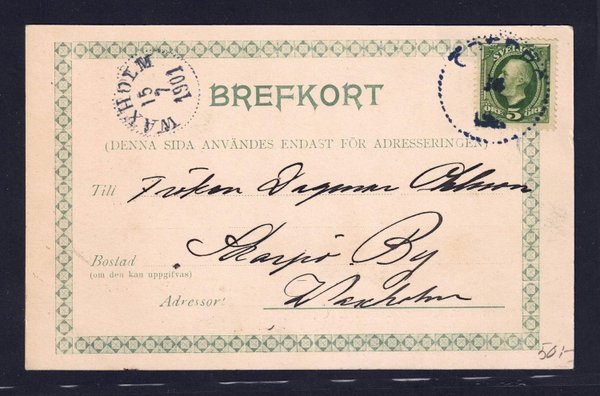 WAXHOLM
15
7
1901
SVERIGE
ÖRE 5 ÖRE
BREFKORT
(DENNA SIDA ANVÄNDES ENDAST FÖR ADRESSERINGEN)
Till Fröken Dagmar Ohlsson
Bostad Skarpö By
(om den kan uppgifvas)
Adressort Waxholm
50:-